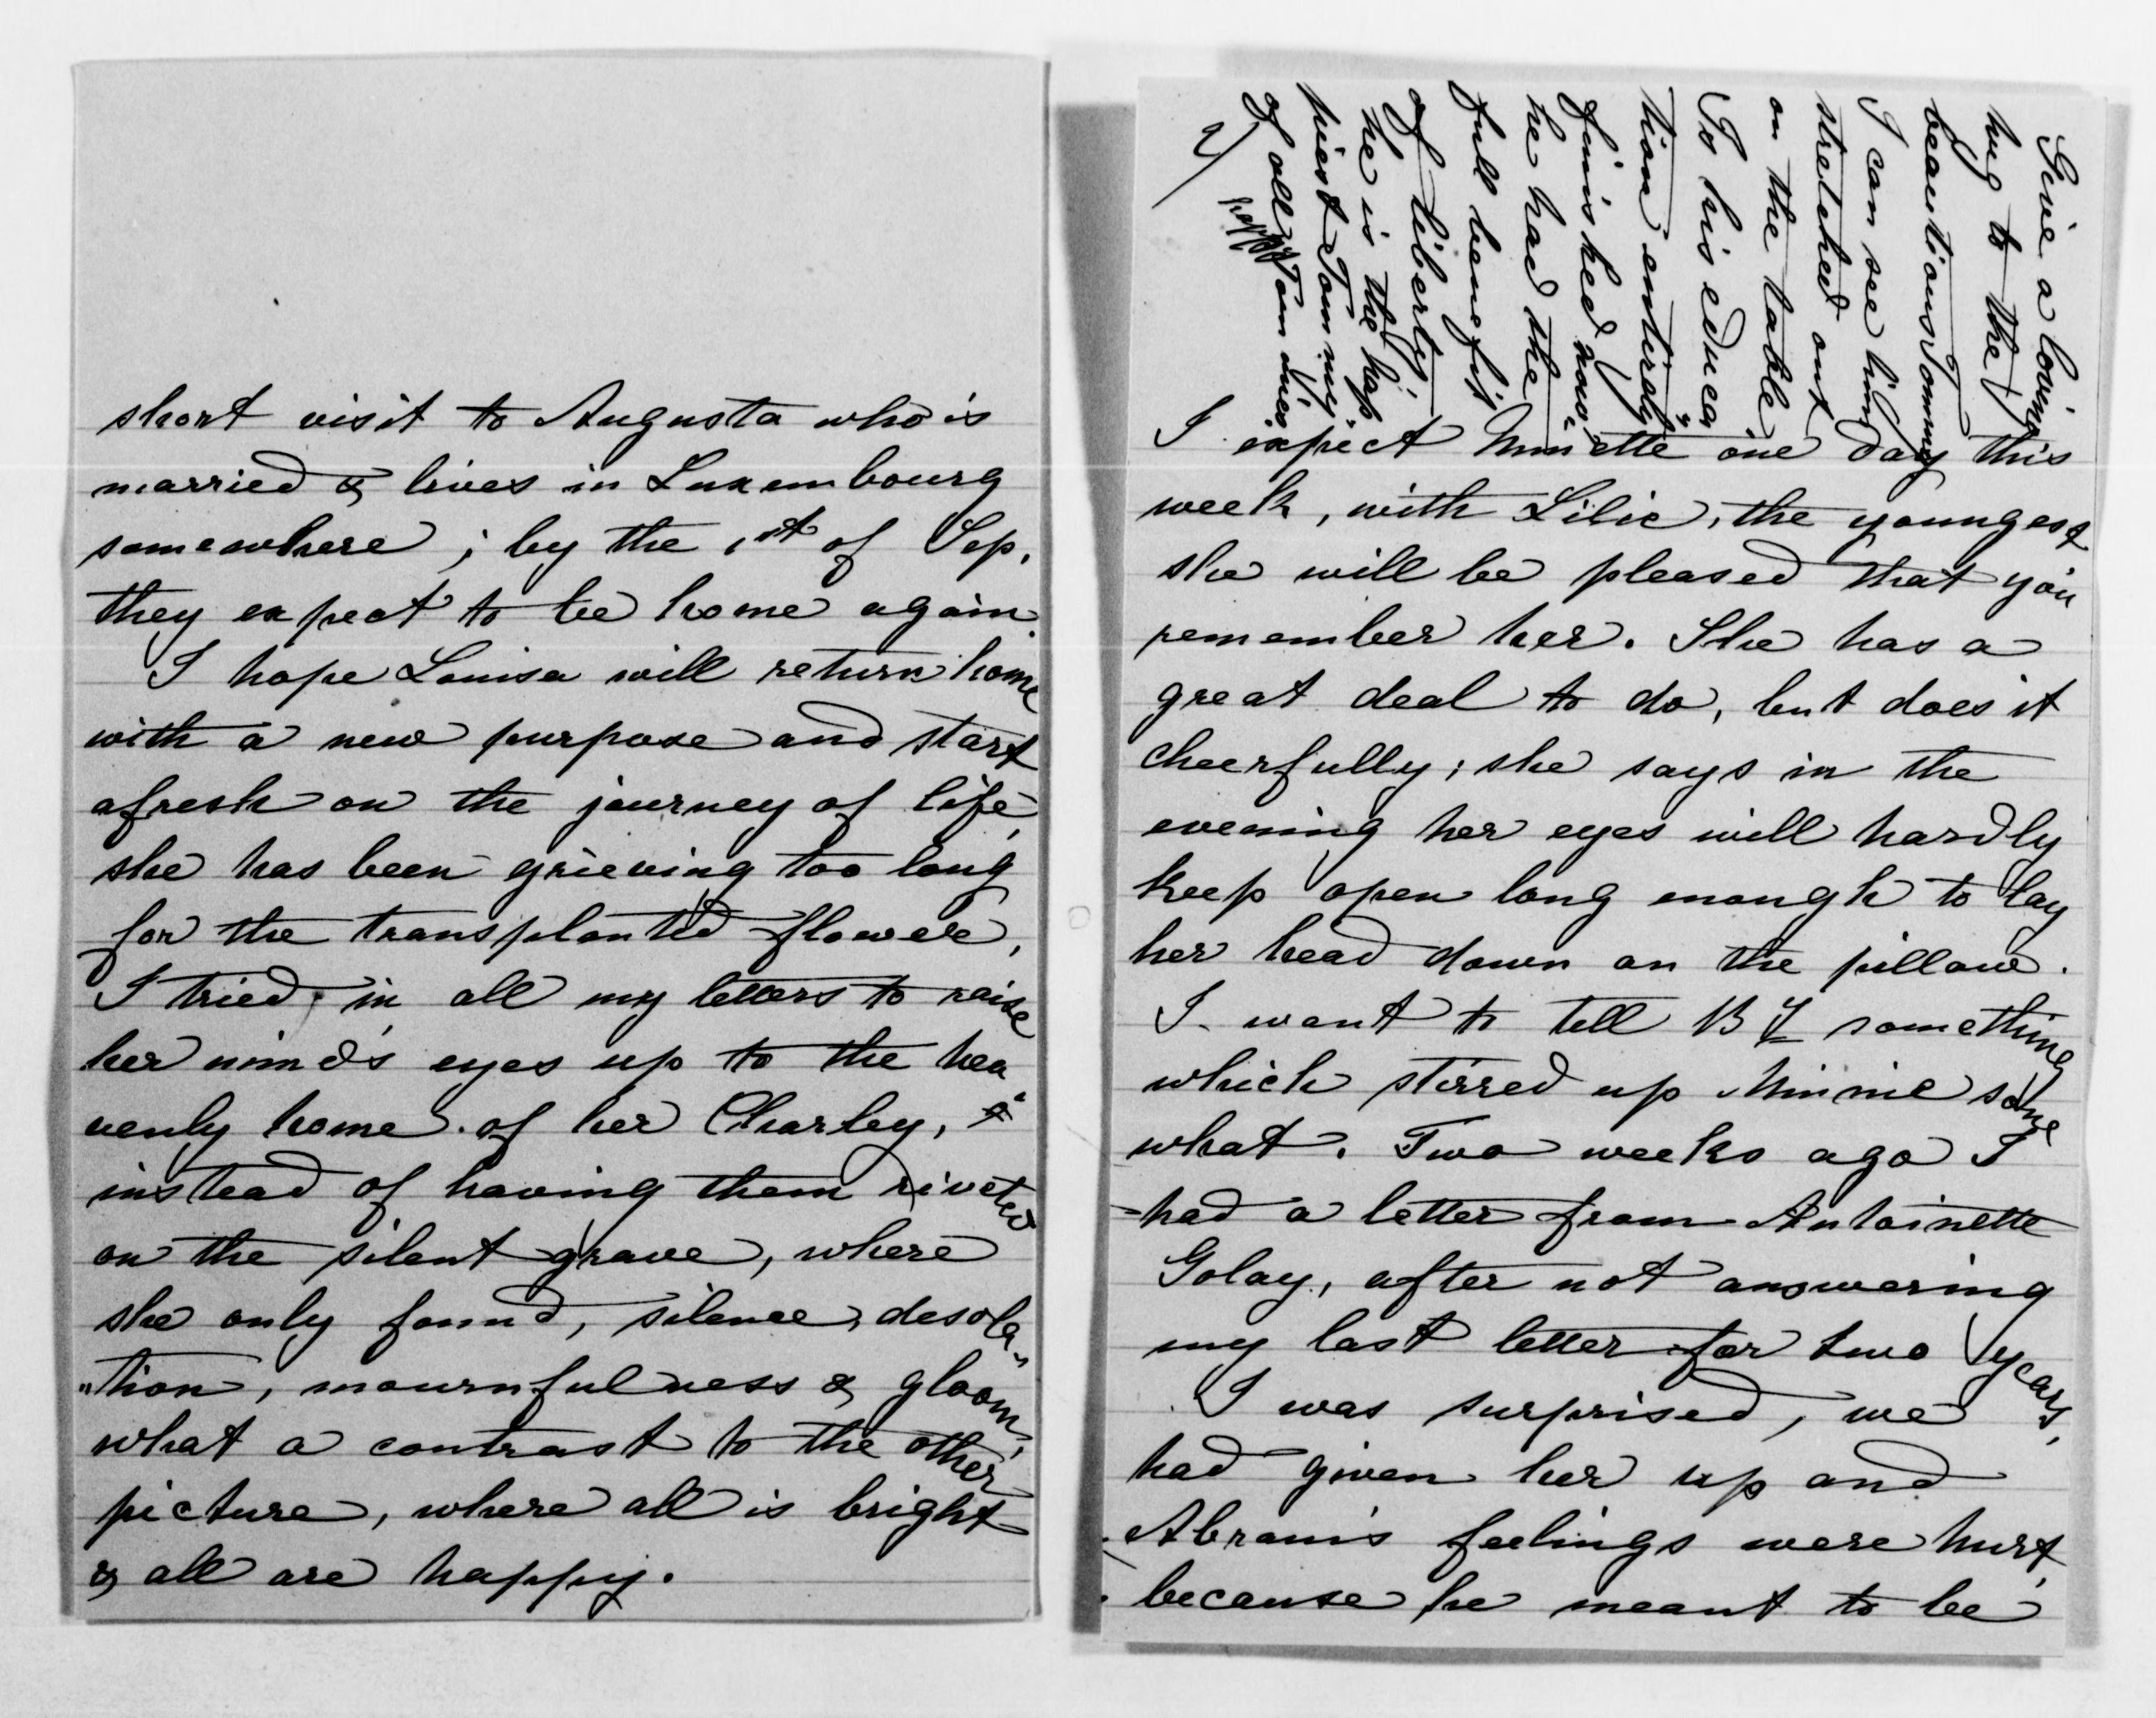 short visit to Augusta who is
married & lives in Luxembourg
somewhere; by the 1st of Sep.
they expect to be home again.
I hope Louisa will return home
with a new purpose and start
afresh on the journey of life,
she has been grieving too long
for the transplanted flower,
I tried, in all my letters to raise
her mind's eyes up to the hea
venly home of her Charley, &
instead of having them riveted
on the silent grave, where
she only found, silence, desola„
„tion, mournfulness & gloom,
what a contrast to the other
picture, where all is bright
& all are happy.
Give a loving
hug to the
beauteous Tommy
I can see him
stretched out
on the table
To his educa
tion entirely
finished now?
he had the
full benefit
of liberty,
he is the hap
piest Tommy
of all Tommies
2/
I expect Minette one day this
week, with Lilie, the youngest
she will be pleased that you
remember her. She has a
great deal to do, but does it
cheerfully; she says in the
evening her eyes will hardly
keep open long enough to lay
her head down on the pillow.
I want to tell something
which stirred up Minnie some
what. Two weeks ago I
had a letter from Antoinette
Golay, after not answering
my last letter for two years,
I was surprised, we
had given her up and
Abram's feelings were hurt,
because he meant to be